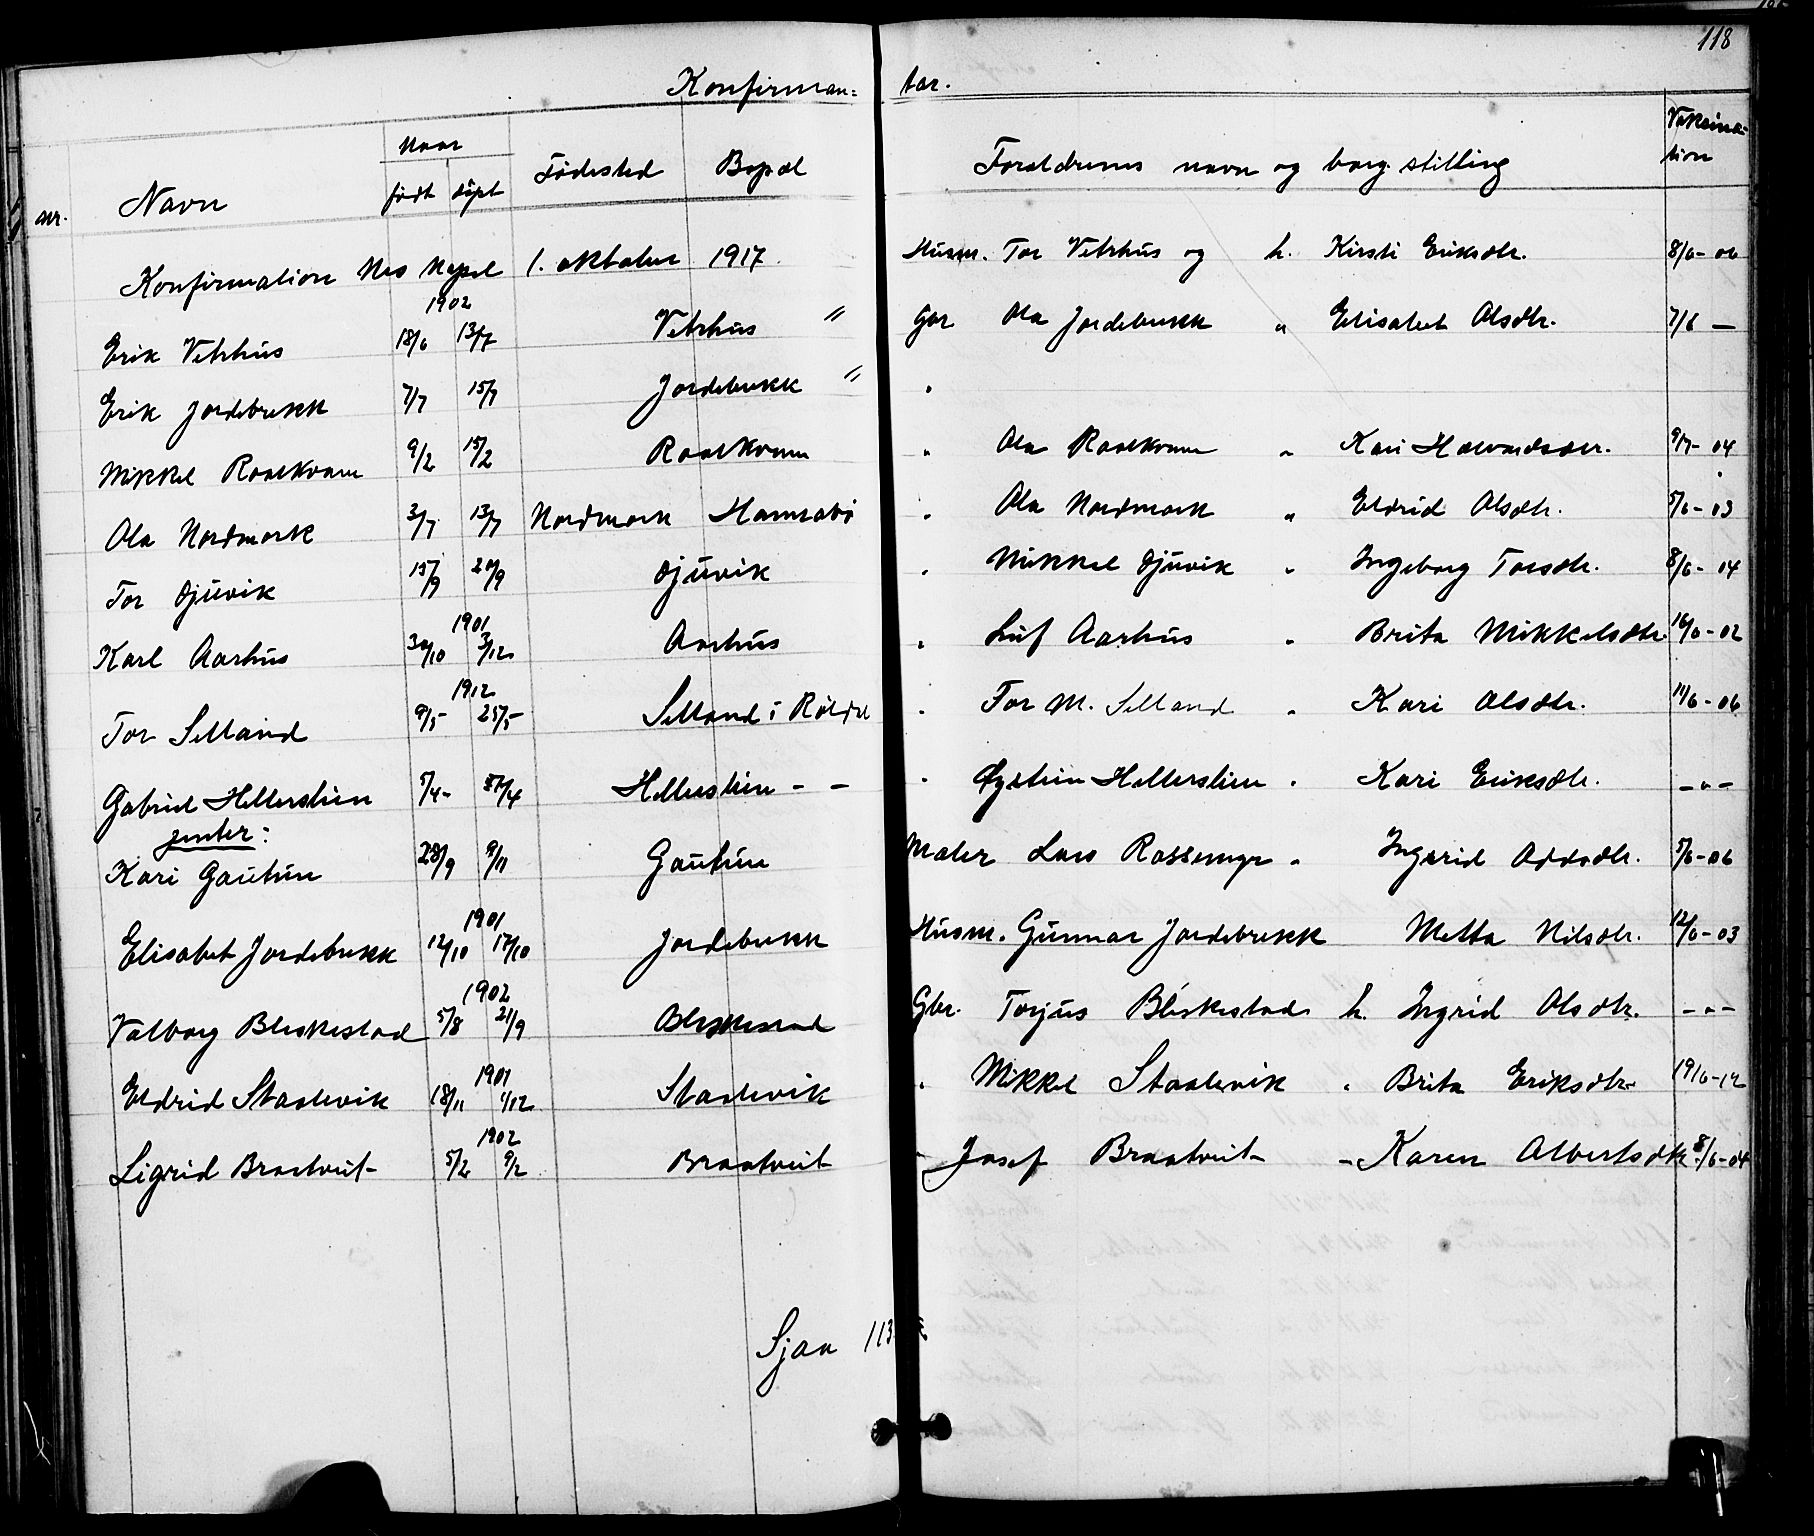 118
Konfirman= tar.
nr. Navn Naar født døpt Fødested Bopæl Forældrenes navn og borg. stilling Vaksina-tion
Konfirmation Nes Kapel 1. oktober 1917.
1902
Erik Vetrhus 18/6 13/7 Vetrhus " Husm. Tor Vetrhus og h. Kirsti Eriksdtr. 8/6-06
Erik Jordebrekk 7/7 15/7 Jordebrekk " Gbr Ola Jordebrekk " Elisabet Olsdtr. 7/6 —
Mikkel Roalkvam 9/2 15/2 Roalkvam " Ola Roalkvam " Kari Halvardsdtr. 9/7-04
Ola Nordmork 3/7 13/7 Nordmork Hamrabø " Ola Nordmork " Eldrid Olsdtr. 5/6-03
Tor Djuvik 15/9 20/9 Djuvik " Mikkel Djuvik " Ingeborg Torsdtr. 8/6-04
1901
Karl Aarhus 30/10 3/12 Aarhus " Leif Aarhus " Brita Mikkelsdtr. 16/6-02
1912
Tor Selland 9/5 25/5 Selland i Røldal " Tor M. Selland " Kari Olsdtr. 11/6-06
Gabriel Hellerslien 5/4- 27/4 Hellerslien - - " Øystein Hellerslien " Kari Eriksdtr. -"-
jenter:
Kari Gautun 28/9 9/11 Gautun Maler Lars Rossemyr " Ingerid Oddsdtr. 5/6-06
1901
Elisabet Jordebrekk 12/10 17/10 Jordebrekk Husm. Gunnar Jordebrekk Metta Nilsdtr. 12/6-03
1902
Valborg Bleskestad 5/8 21/9 Bleskestad Gbr. Torjus Bleskestad h. Ingrid Olsdtr. -"-
1901
Eldrid Staalevik 18/11 1/12 Staalevik " Mikkel Staalevik " Brita Eriksdtr. 19/6-12
1902
Sigrid Braatveit 5/2 9/2 Braatveit - Josef Braatveit - Karen Albertsdtr. 8/6-04
Sjaa 113